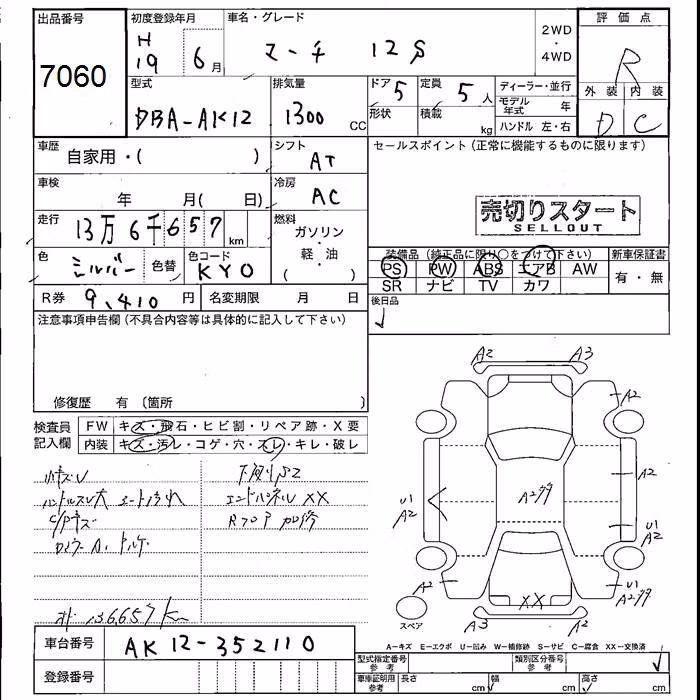 出品番号
7060
初度登録年月
H
19 6月
車名・グレード
マーチ 12S
2WD
・
4WD
評価点
R
外装 内装
D C
型式
DBA-AK12
排気量
1300 CC
ドア 5
形状
定員 5人
積載 kg
ディーラー・並行
モデル年式 年
ハンドル 左・右
車歴
自家用・( )
シフト
AT
車検
年 月( 日)
冷房
AC
走行
13万6千657 km
燃料
ガソリン
・
軽・油
( )
色
シルバー
色替
色コード
KYO
R券 9,410円
名変期限 月 日
セールスポイント(正常に機能するものに限ります)
売切りスタート
SELLOUT
装備品(純正品に限り○をつけて下さい)
新車保証書
PS PW ABS エアB AW
SR ナビ TV カワ
有・無
後日品
注意事項申告欄(不具合内容等は具体的に記入して下さい)
修復歴 有 〔箇所 〕
検査員
記入欄
FW キズ・飛石・ヒビ割・リペア跡・X要
内装 キズ・汚レ・コゲ・穴・スレ・キレ・破レ
ハンドルスレ大 シート汚れ
エンドパネルXX
Rフロア
136657km
A2 A3
A2
A2
U1
A2
U1
A2
A2
U1
XX
A3 A2
スペア
A-キズ E-エクボ U-凹み W-補修跡 S-サビ C-腐食 XX-交換済
車台番号
AK12-352110
登録番号
型式指定番号
参考
類別区分番号
参考
車庫証明用
参考
長さ cm
幅 cm
高さ cm